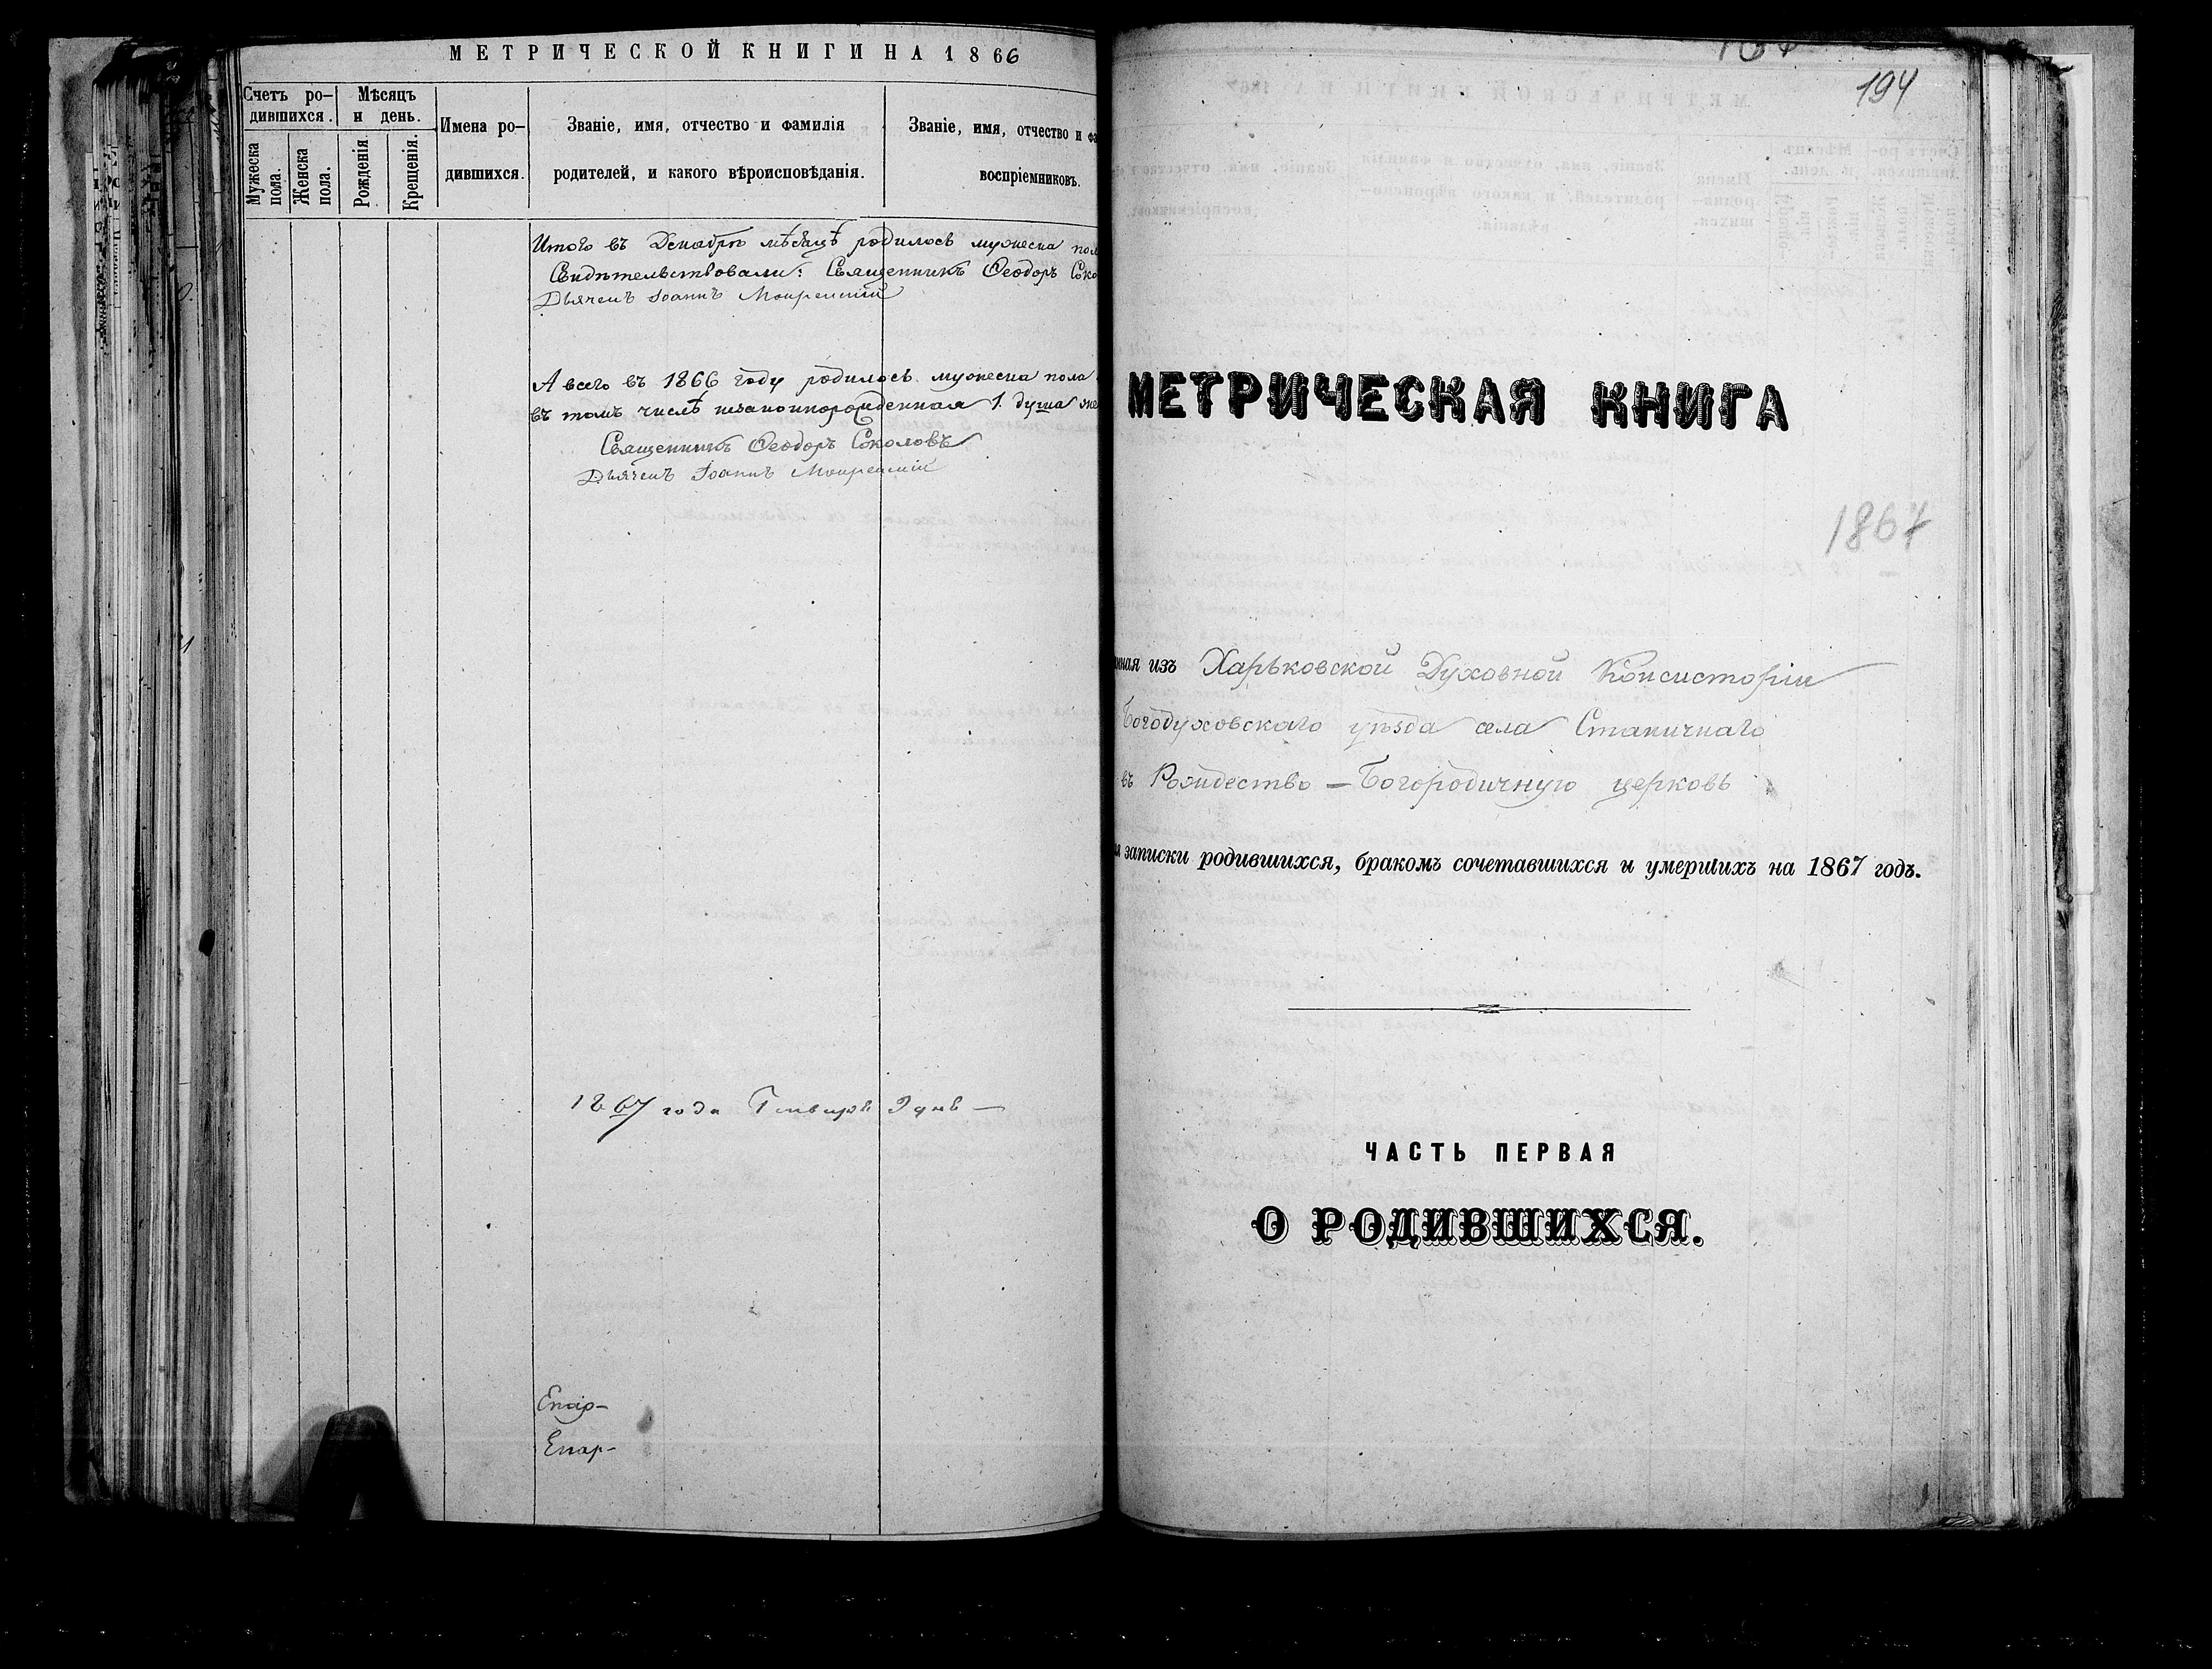 МЕТРИЧЕСКОЙ КНИГИ НА 1866
Счетъ ро-
дившихся.
Мѣсяцъ
и день.
Мужеска
пола.
Женска
пола.
Рожденія.
Крещенія.
Имена ро-
дившихся.
Званіе, имя, отчество и фамилія
родителей, и какого вѣроисповѣданія.
Званіе, имя, отчество и
воспріемниковъ.
Итого въ Декабрѣ мѣсяцѣ родилось мужеска
Свидѣтельствовали: Священникъ Ѳеодоръ
Дьячекъ Іоаннъ
А всего въ 1866 году родилось мужеска пола
въ томъ числѣ незаконнорожденная 1. душа
Священникъ Ѳеодоръ Соколовъ
Дьячекъ Іоаннъ
1867 года Генваря 9 дня —
Епар-
Епар-
194
МЕТРИЧЕСКАЯ КНИГА
1867
изъ Харьковской Духовной Консисторіи
Богодуховскаго уѣзда села Станичнаго
въ Рождество-Богородичную церковь
записки родившихся, бракомъ сочетавшихся и умершихъ на 1867 годъ.
ЧАСТЬ ПЕРВАЯ
О РОДИВШИХСЯ.